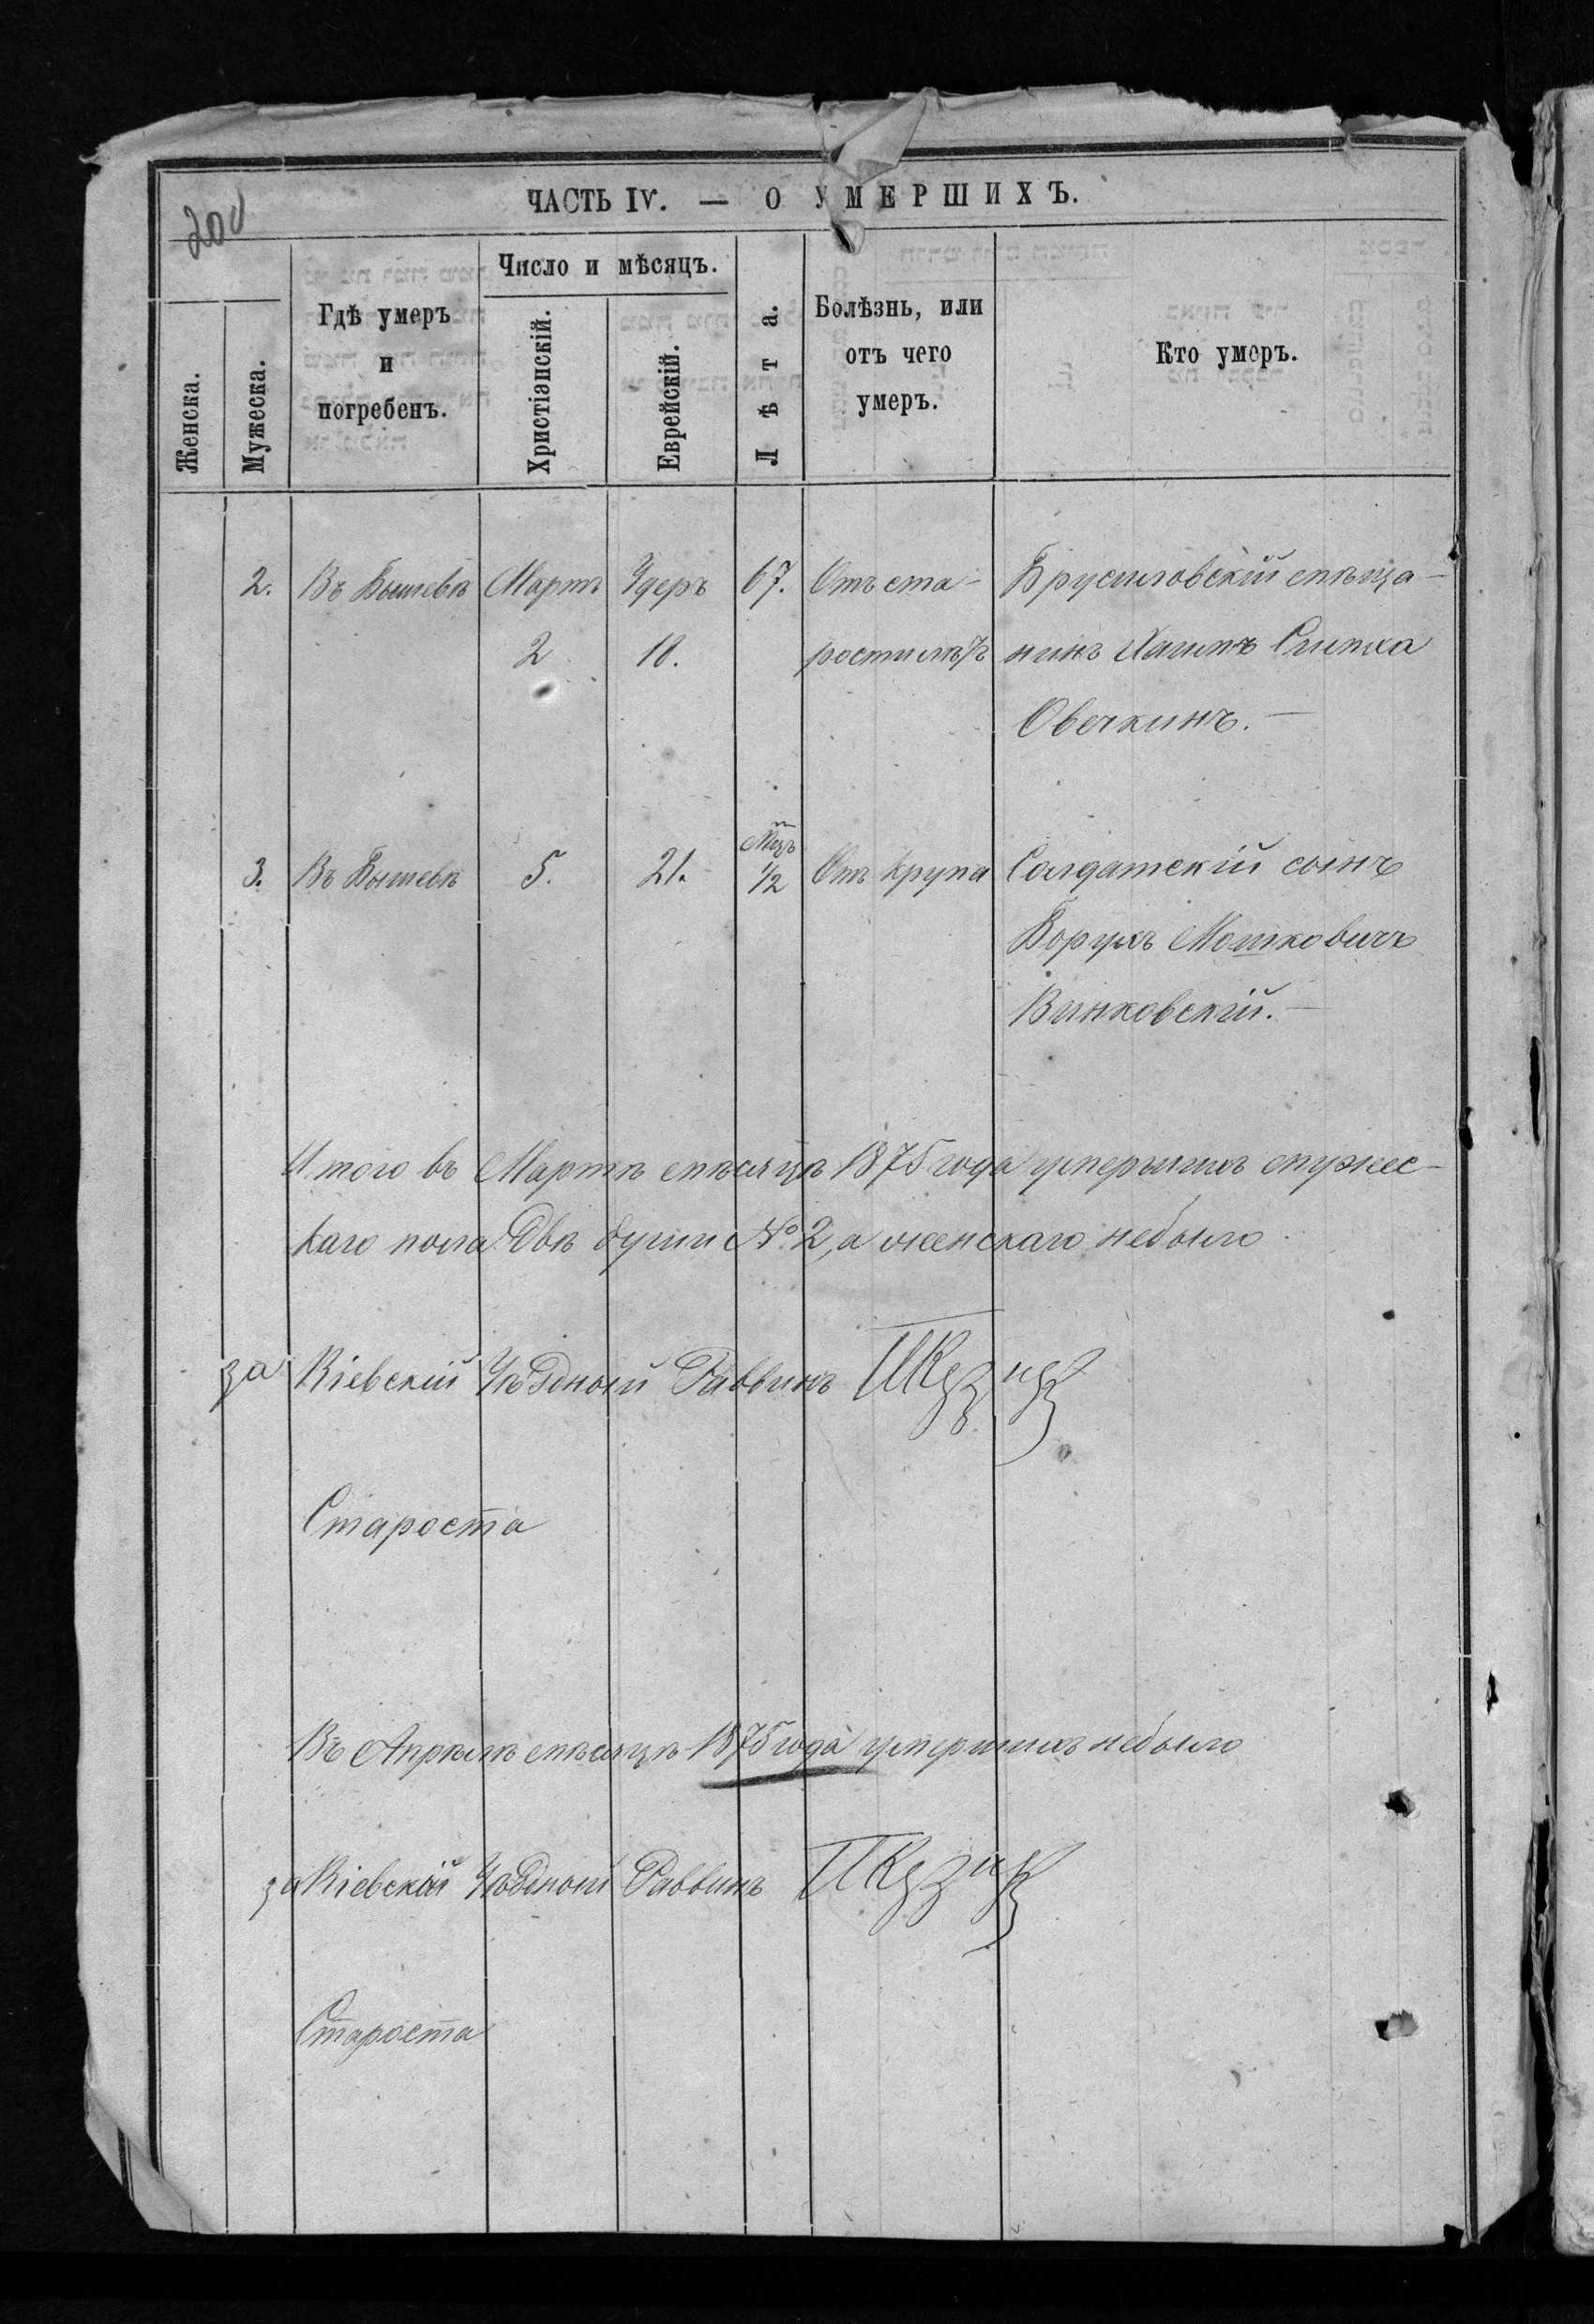 200
ЧАСТЬ IV. — О УМЕРШИХЪ.
Женска.
Мужеска.
Гдѣ умеръ
и
погребенъ.
Число и мѣсяцъ.
Христіанскій.
Еврейскій.
Лѣта.
Болѣзнь, или
отъ чего
умеръ.
Кто умеръ.
2. Въ Бышевѣ Мартъ Адеръ 67. Отъ ста- Брусиловскій мѣща-
2 18. рости лѣтъ нинъ Хаимъ Симха
Овечкинъ. —
Мцъ
3. Въ Бышевѣ 5. 21. 1/2 Отъ крупа Солдатскій сынъ
Борухъ Мошковичъ
Винковскій. —
Итого въ Мартѣ мѣсяцѣ 1875 года умершихъ мужес-
каго пола Двѣ души № 2, а женскаго небыло
за Кіевскій Уѣздный Раввинъ
Староста
Въ Апрѣлѣ мѣсяцѣ 1875 года умершихъ небыло
за Кіевскій Уѣздный Раввинъ
Староста